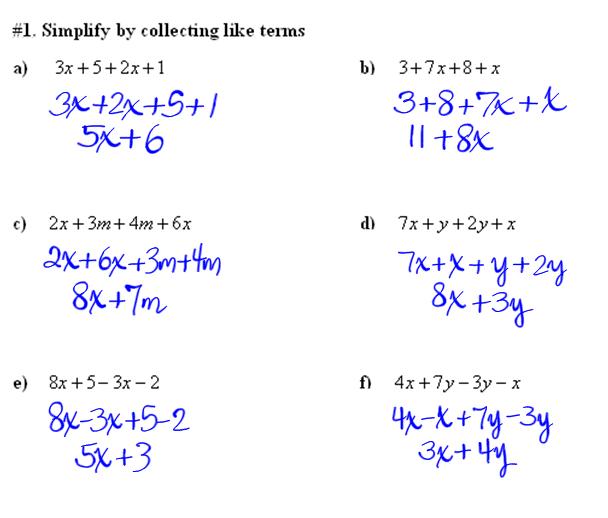 #1. Simplify by collecting like terms
a) 3x+5+2x+1
3x+2x+5+1
5x+6
b) 3+7x+8+x
3+8+7x+x
11+8x
c) 2x+3m+4m+6x
2x+6x+3m+4m
8x+7m
d) 7x+y+2y+x
7x+x+y+2y
8x+3y
e) 8x+5–3x–2
8x-3x+5-2
5x+3
f) 4x+7y–3y–x
4x-x+7y-3y
3x+4y